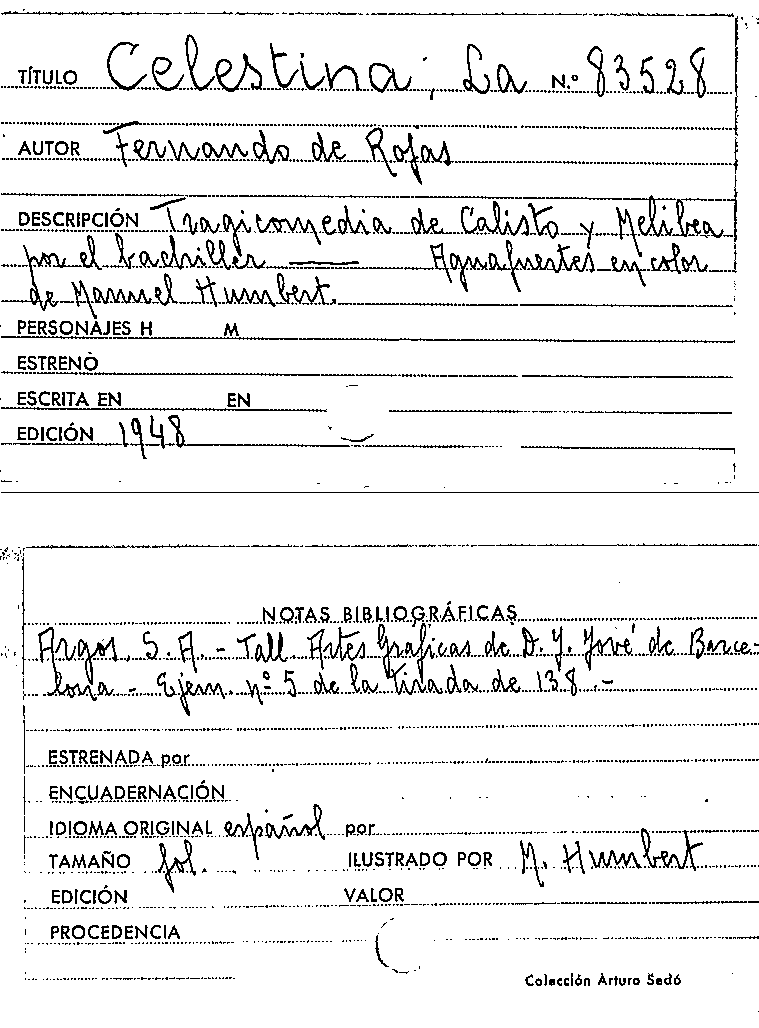 TÍTULO Celestina, La N.º 83528
AUTOR Fernando de Rojas
DESCRIPCIÓN Tragicomedia de Calisto y Melibea
por el bachiller —— Aguafuertes en color
de Manuel Humbert.
PERSONAJES H M
ESTRENÓ
ESCRITA EN EN
EDICIÓN 1948
NOTAS BIBLIOGRÁFICAS
Argos, S.A. - Tall. Artes Gráficas de D. J. Jové de Barce-
lona - Ejem. nº 5 de la tirada de 138.-
ESTRENADA por
ENCUADERNACIÓN
IDIOMA ORIGINAL español por
TAMAÑO fol. ILUSTRADO POR M. Humbert
EDICIÓN VALOR
PROCEDENCIA
Colección Arturo Sedó